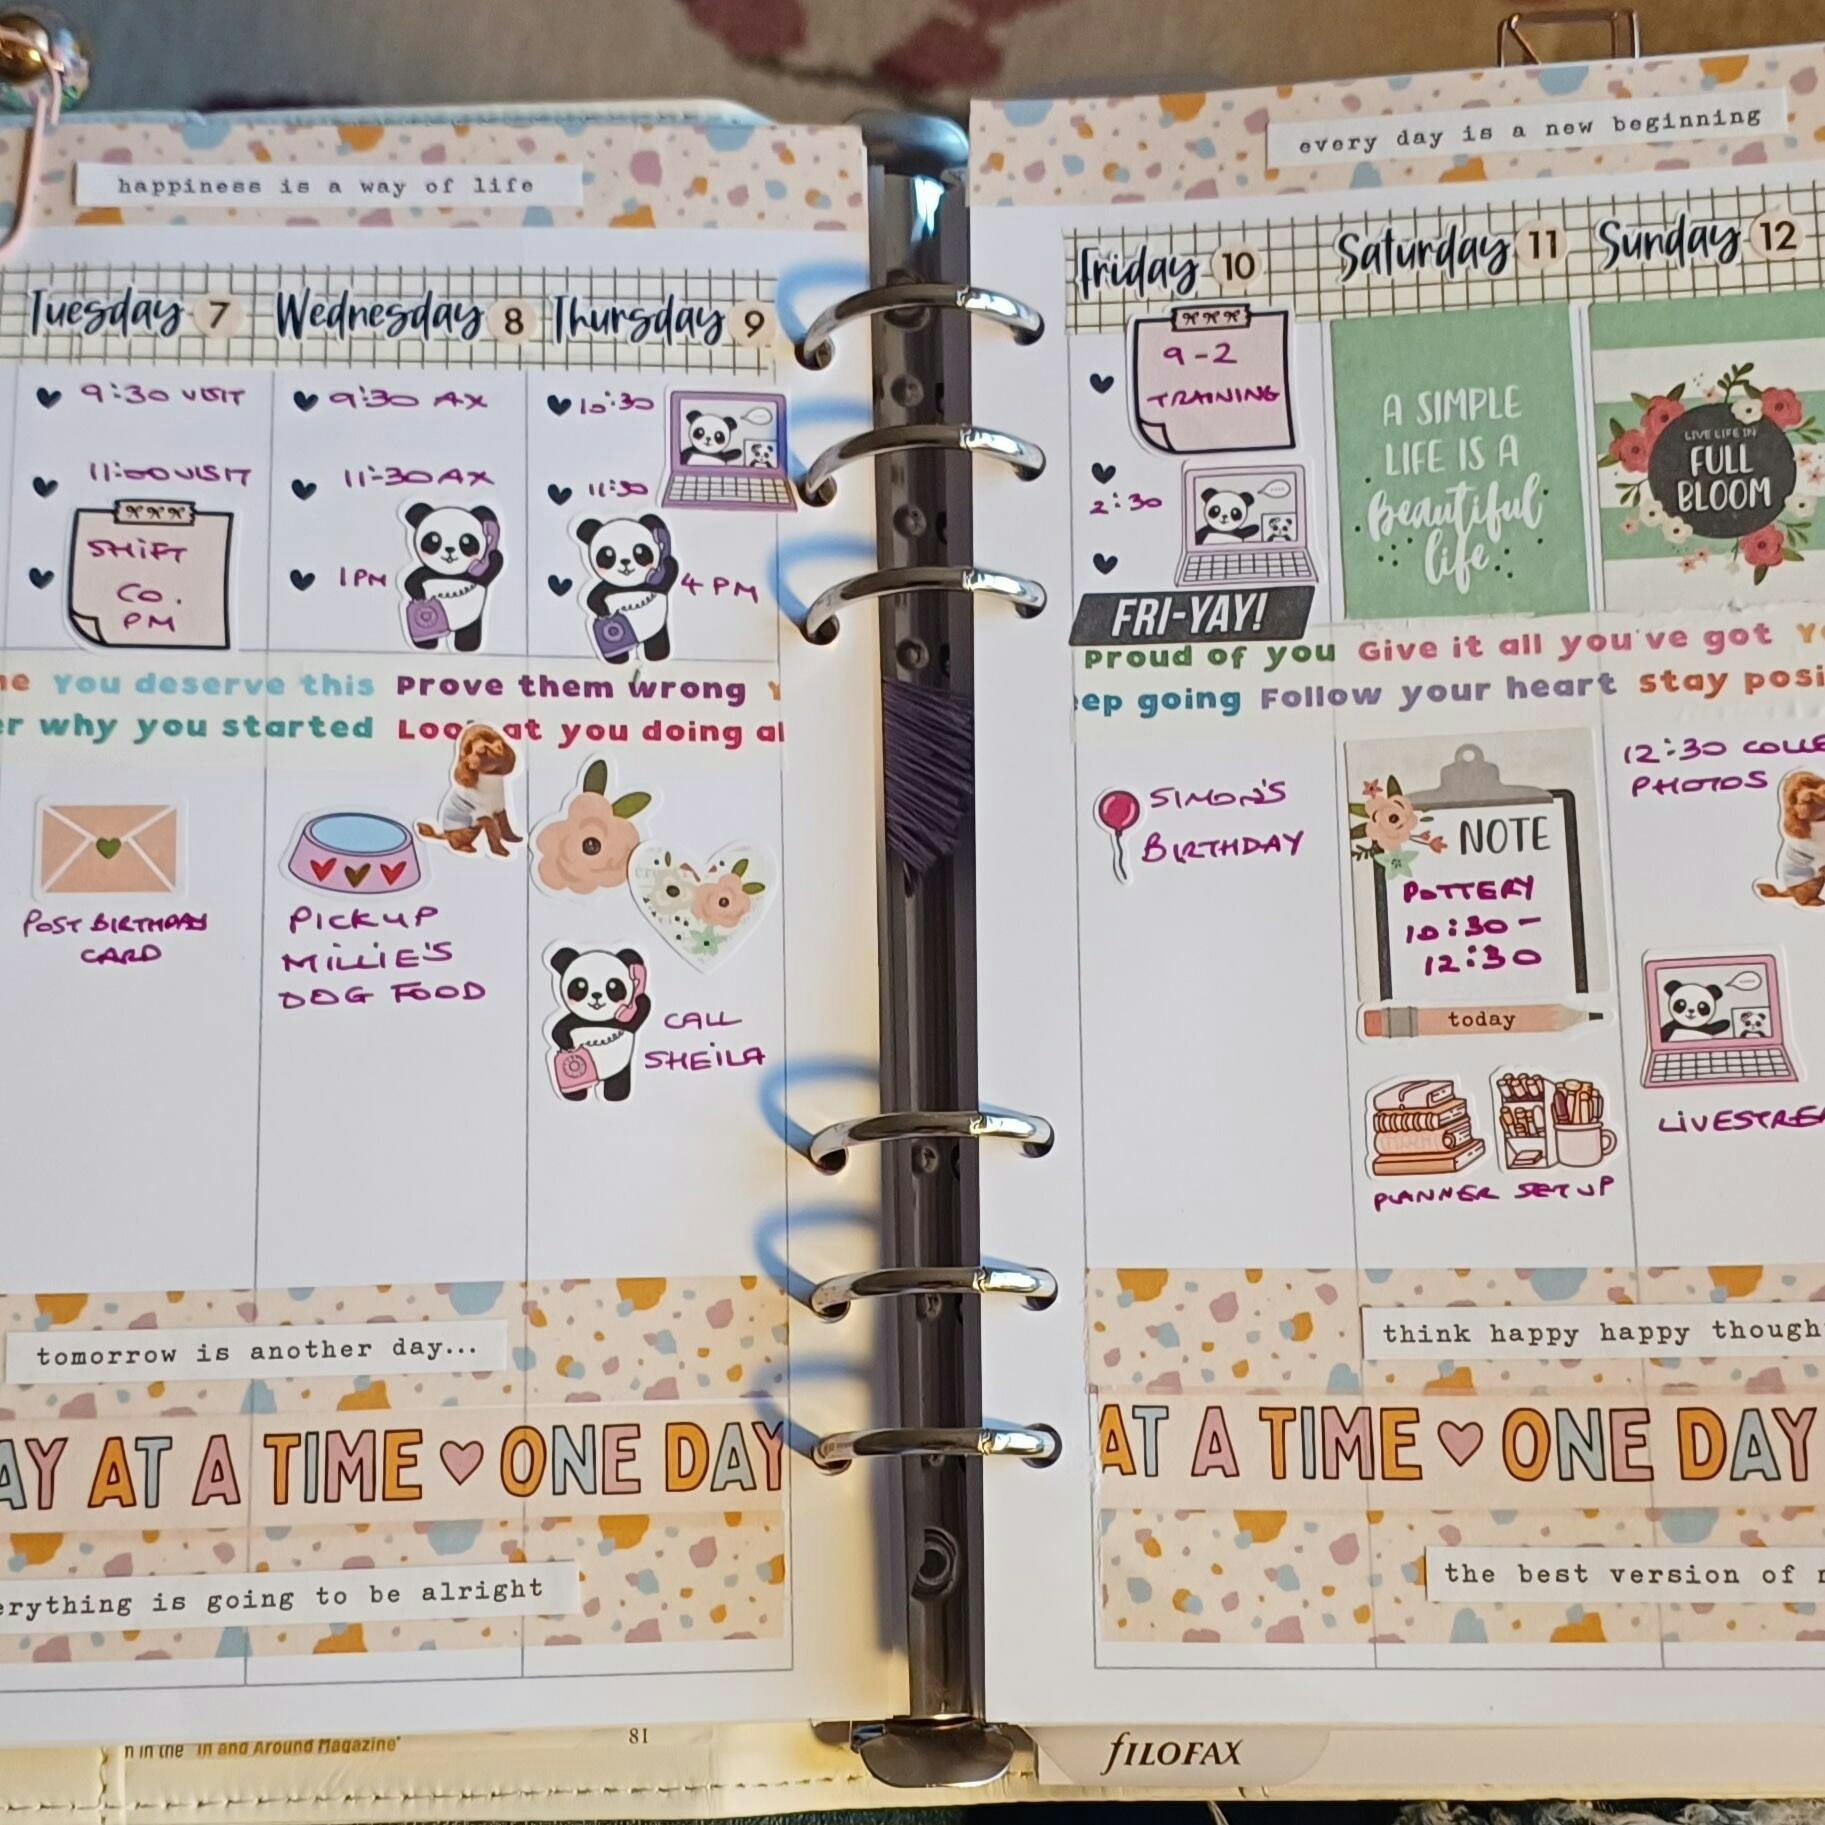 happiness is a way of life
Tuesday 7 Wednesday 8 Thursday 9
9:30 VISIT
11:00 VISIT
SHIFT
CO.
PM
9:30 AX
11-30 AX
1 PM
10:30
11:30
4 PM
You deserve this Prove them wrong
why you started Look at you doing
POST BIRTHDAY
CARD
PICK UP
MILLIE'S
DOG FOOD
CALL
SHEILA
tomorrow is another day...
AY AT A TIME ♥ ONE DAY
erything is going to be alright
n in the "In and Around Magazine"
81
every day is a new beginning
Friday 10 Saturday 11 Sunday 12
9-2
TRAINING
2:30
FRI-YAY!
A SIMPLE
LIFE IS A
beautiful
life
LIVE LIFE IN
FULL
BLOOM
Proud of you Give it all you've got
eep going Follow your heart stay posi
SIMON'S
BIRTHDAY
NOTE
POTTERY
10:30-
12:30
today
PLANNER SET UP
12:30 COLLE
PHOTOS
LIVESTREA
think happy happy though
AT A TIME ♥ ONE DAY
the best version of
fILOFAX